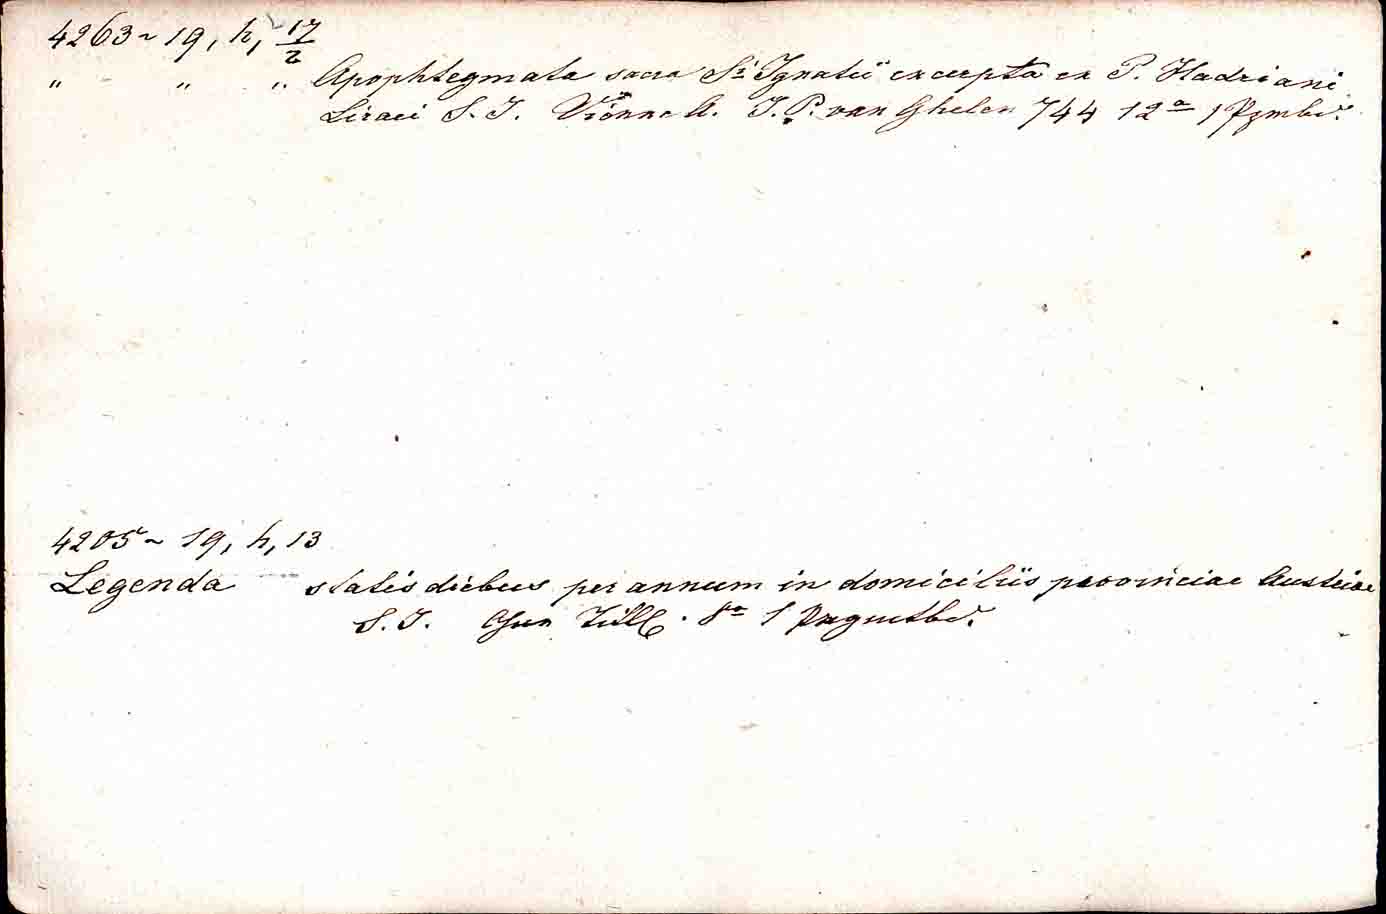 4263~ 19, h, 17/2
" " " Apophtegmata sacra Sti Ignatii excerpta ex P. Hadriani
Liraei S. J. Viennae. J. P. van Ghelen 744 12° 1 Pgmbd.
4205~ 19, h, 13
Legenda statis diebus per annum in domiciliis provinciae Austriae
S. J. 8° 1